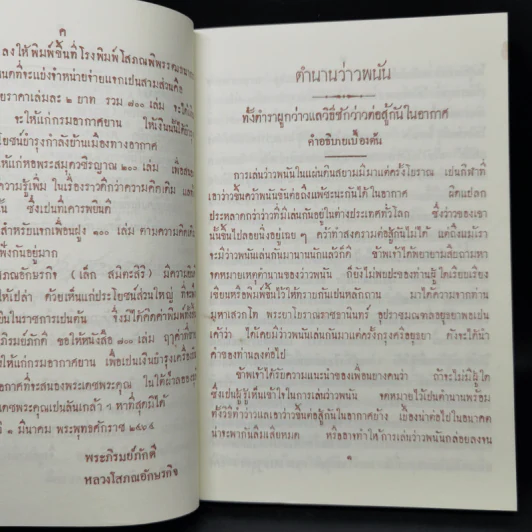 ค
ลงให้พิมพ์ขึ้นที่โรงพิมพ์โสภณพิพรรฒธนากร
ที่จะแบ่งจำหน่ายจ่ายแจกเปนสามส่วนคือ
ราคาเล่มละ ๒ บาท รวม ๗๐๐ เล่ม
จะให้แก่กรมอากาศยาน ให้เงินนั้นได้
โยชน์บำรุงกำลังบ้านเมืองทางอากาศ
ให้แก่หอพระสมุดวชิรญาณ ๒๐๐ เล่ม
ความรู้เพิ่ม ในเรื่องราวดีกว่าความคิดเดิม
ซึ่งเปนที่เคารพยินดี
สำหรับแจกเพื่อนฝูง ๑๐๐ เล่ม ตามความคิดเห็น
พึ่งกันอยู่มาก
โสภณอักษรกิจ (เล็ก สมิตะสิริ) มีความยินดี
ให้เปล่า ด้วยเห็นแก่ประโยชน์ส่วนใหญ่
เปนในราชการเปนต้น จึงมิได้คิดค่า
ภิรมย์ภักดี ขอให้หนังสือ ๗๐๐ เล่ม
ให้แก่กรมอากาศยาน เพื่อเปนเงินบำรุง
อากาศที่จะสนองพระเดชพระคุณ
เดชพระคุณเปนล้นเกล้า ฯ หาที่สุดมิได้
๑ มีนาคม พระพุทธศักราช
พระภิรมย์ภักดี
หลวงโสภณอักษรกิจ
ตำนานว่าวพนัน
ทั้งตำราผูกว่าวแลวิธีชักว่าวต่อสู้กันในอากาศ
คำอธิบายเบื้องต้น
การเล่นว่าวพนันในแผ่นดินสยามมีมาแต่ครั้งโบราณ เปนกีฬาที่
เอาว่าวขึ้นคว้าพนันขันต่อถึงแพ้ชนะกันได้ในอากาศ ผิดแปลก
ประหลาดกว่าว่าวที่มีเล่นกันอยู่ในต่างประเทศทั่วโลก ซึ่งว่าวของเขา
นั้นขึ้นไปลอยนิ่งอยู่เฉย ๆ คว้าทำสงครามต่อสู้กันไม่ได้ แต่ถึงแม้เรา
จะมีว่าวพนันเล่นกันมานานนักแล้วก็ดี ข้าพเจ้าได้พยายามสืบถามหา
จดหมายเหตุตำนานของว่าวพนัน ก็ยังไม่พบปะของท่านผู้ใดเรียบเรียง
เขียนหรือพิมพ์ขึ้นไว้ให้ทราบกันเปนหลักฐาน มาได้ความจากท่าน
มหาเสวกโท พระยาโบราณราชธานินทร์ อุปราชมณฑลอยุธยาพอเปน
เค้าว่า ได้เคยมีว่าวพนันเล่นกันมาแต่ครั้งกรุงศรีอยุธยา ดังจะได้นำ
คำของท่านลงต่อไป
ข้าพเจ้าได้รับความแนะนำของเพื่อนบางคนว่า ถ้าจะไม่มีผู้ใด
ซึ่งเปนผู้รู้เห็นเข้าใจในการเล่นว่าวพนัน จดหมายไว้เปนตำนานพร้อม
ทั้งวิธีทำว่าวแลเอาว่าวขึ้นต่อสู้กันในอากาศบ้าง เบื้องน่าต่อไปในอนาคต
น่าจะพากันลืมเสียหมด หรืออาจทำให้การเล่นว่าวพนันกล่อยลงจน
๑